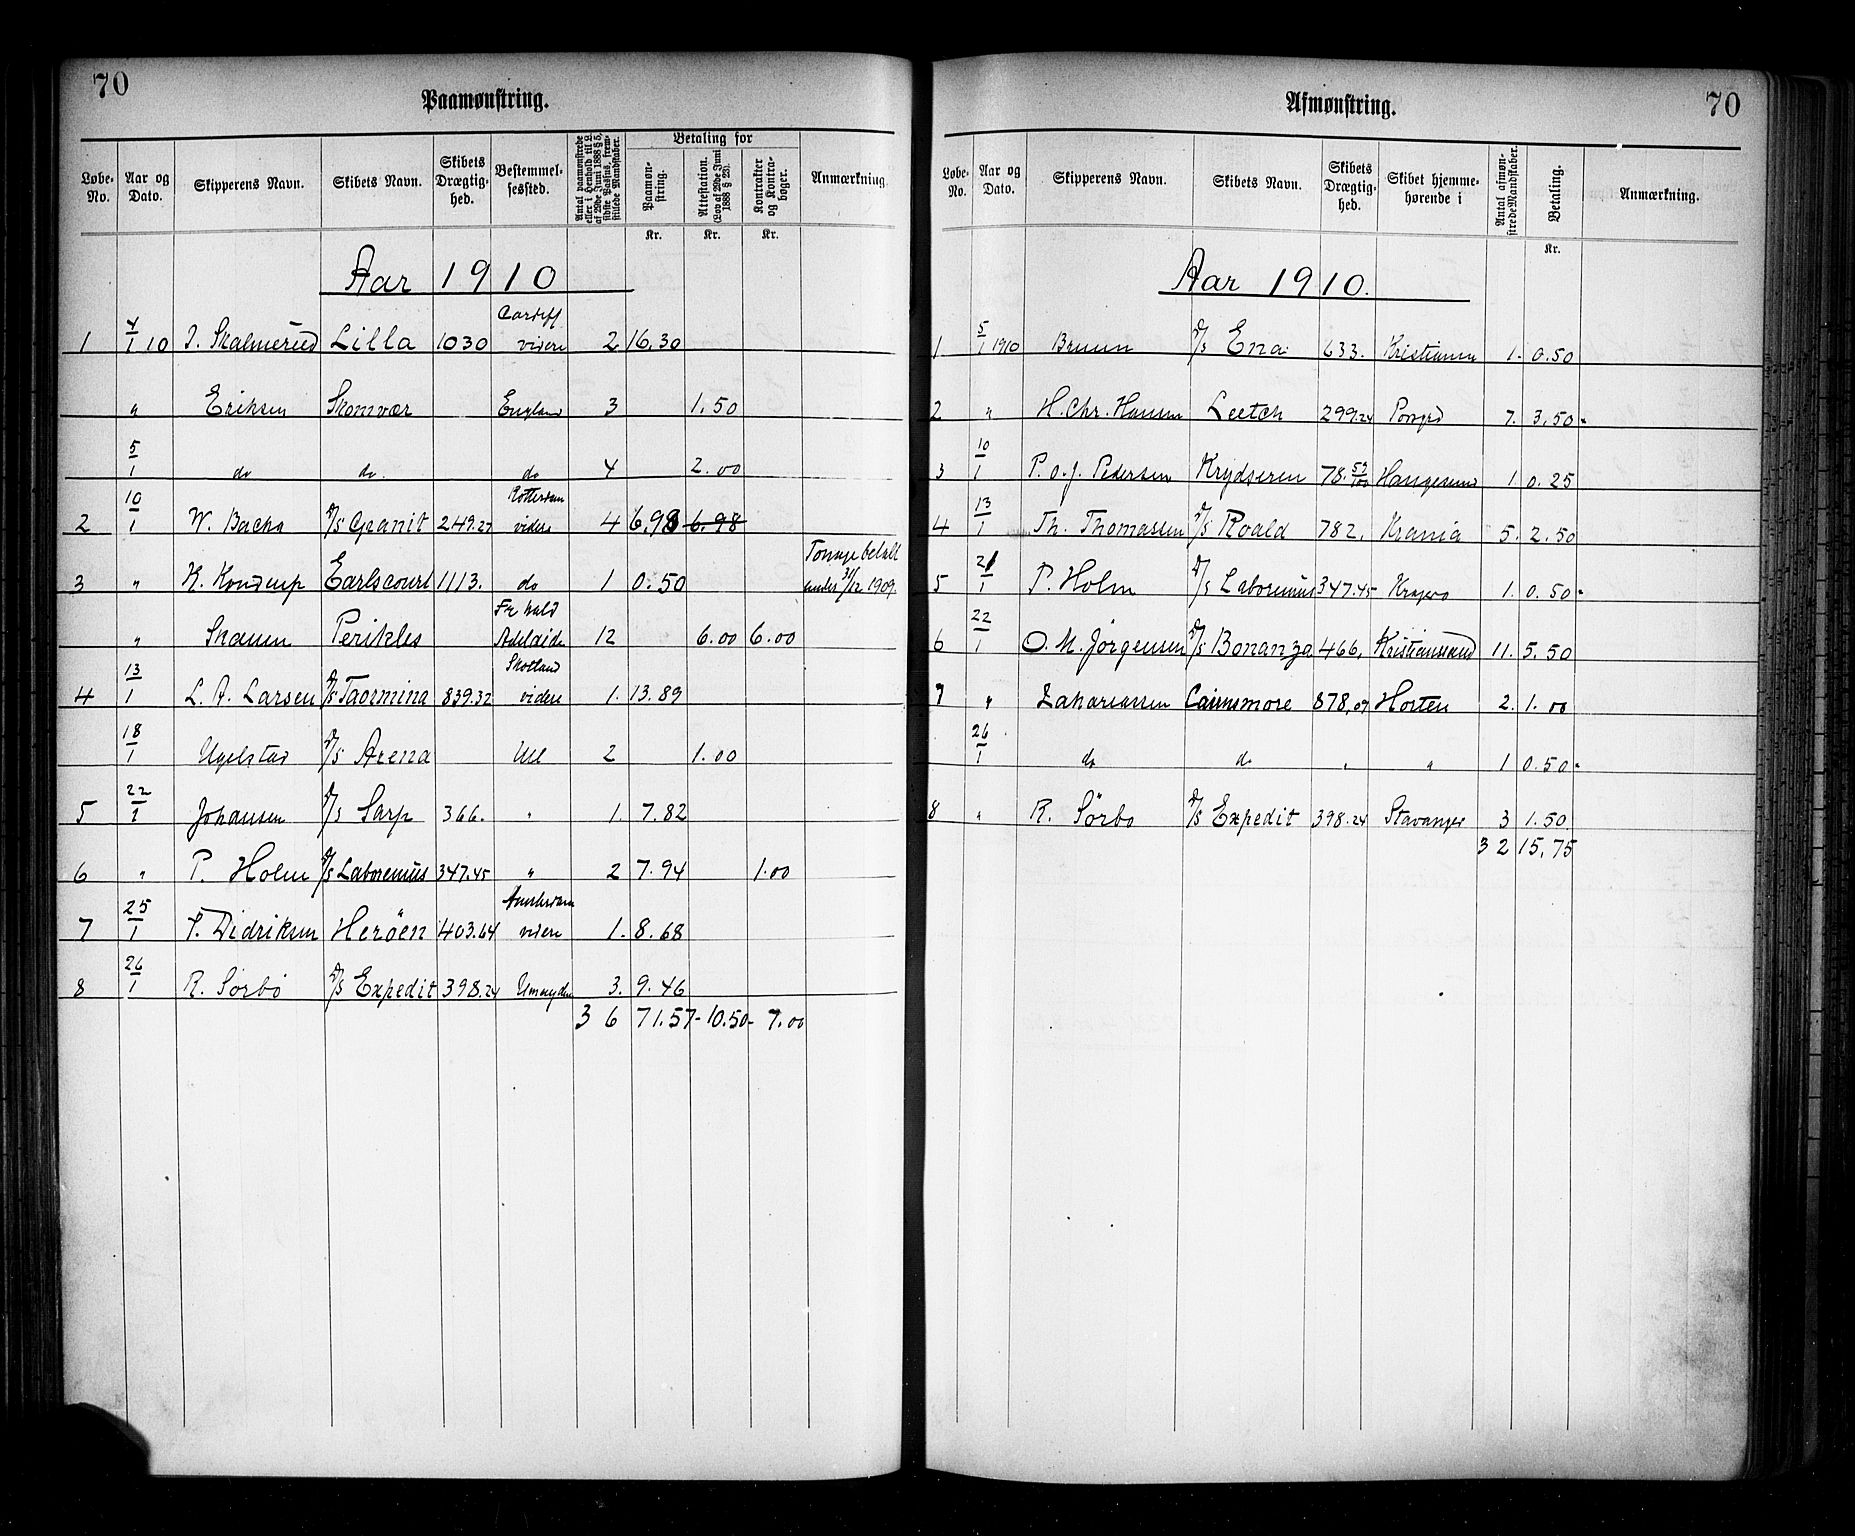 70
Paamønstring.
Løbe-No. Aar og Dato. Skipperens Navn. Skibets Navn. Skibets Drægtighed. Bestemmelsessted. Antal paamønstrede eller i Henhold til L. af 29de Juni 1888 § 5, sidste Passus, fremstillede Mandstaber. Betaling for Paamønstring. Kr. Attestation. (Lov af 29de Juni 1888 § 23). Kr. Kontrakter og Kontrabøger. Kr. Anmærkning.
Aar 1910
1 4/1 10 J. Skalmerud Lilla 1030 Cardiff videre 2 16.30
" Eriksen Skomvær England 3 1.50
5/1 do do. do 4 2.00
2 10/1 W. Backa D/S Granit 249.27 Rotterdam videre 4 6.98 6.98
3 " K. Kontrup Earlscourt 1113. do 1 0.50 Tonnage betalt under 31/12 1909.
" Skauen Perikles Fr.hald Adelaide 12 6.00 6.00
4 13/1 L. A. Larsen D/S Taormina 839.32 Skotland videre 1. 13.89
18/1 Ugelstad D/S Arena Utl 2 1.00
5 22/1 Johansen D/S Sarp 366. " 1. 7.82
6 " P. Holm D/S Laboremus 347.45 " 2 7.94 1.00
7 25/1 F. Didriksen Herøen 403.64 Amsterdam videre 1. 8.68
8 26/1 R. Sørbø D/S Expedit 398.24 Umuyden 3. 9.46
36 71.57- 10.50- 7.00
70
Afmønstring.
Løbe-No. Aar og Dato. Skipperens Navn. Skibets Navn. Skibets Drægtighed. Skibet hjemmehørende i Antal afmønstrede Mandstaber. Betaling. Kr. Anmærkning.
Aar 1910.
1 5/1 1910 Bruun D/S Ena 633. Kristiania 1. 0.50
2 " H. Chr. Hansen Leetch 299.24 Porsgrd 7. 3,50"
3 10/1 P. O. J. Pedersen Krydseren 78.57/100 Haugesund 1. 0.25
4 13/1 Th. Thomassen D/S Roald 782, Krania 5. 2.50
5 21/1 P. Holm D/S Laboremus 347.45 Kragerø 1. 0.50"
6 22/1 O. M. Jørgensen D/S Bonanza 466, Kristianssund 11. 5.50
7 " Zakariassen Cairnsmore 878,07 Horten 2. 1.00
26/1 do do " " 1 0.50"
8 " R. Sørbø D/S Expedit 398.24 Stavanger 3 1.50
32 15,75